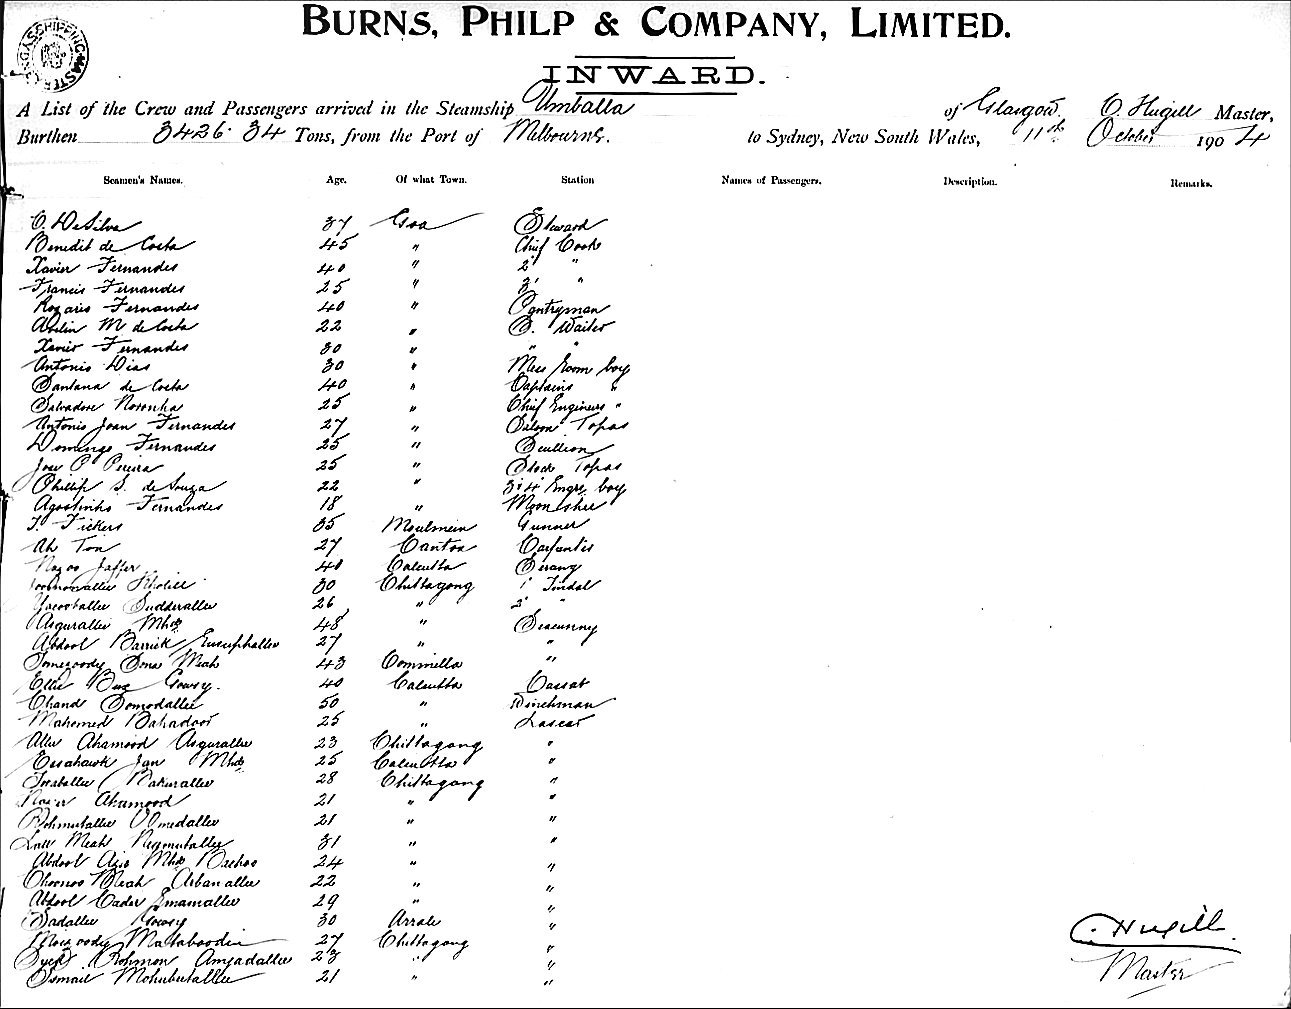 BURNS, PHILP & COMPANY, LIMITED.
INWARD.
A List of the Crew and Passengers arrived in the Steamship Umballa of Glasgow C. Hugill Master,
Burthen 3426 34 Tons, from the Port of Melbourne. to Sydney, New South Wales, 11th October 1904
Seamen's Names. Age. Of what Town. Station Names of Passengers. Description. Remarks.
C. De Silva 37 Goa Steward
Benedit de Costa 45 " Chief Cook
Xavier Fernandes 40 " 2' "
Francis Fernandes 25 " 3' "
Rozario Fernandes 40 " Pantryman
M de Costa 22 " S. Waiter
Xavier Fernandes 30 " " "
Antonio Dias 30 " Mess Room boy
Santana de Costa 40 " Captains "
Salvadore Noronha 25 " Chief Engineers "
Antonio Joan Fernandes 27 " Saloon Topas
Domingo Fernandes 25 " Scullion
Jose P Pereira 25 " Topas
Phillip S. de Souza 22 " 3 & 4 Engrs boy
Agostinho Fernandes 18 "
J. Fickers 35 Moulmein Gunner
Ah Ton 27 Canton Carpenter
Jaffer 40 Calcutta Serang
30 Chittagong 1' Tindal
Yacooballee Sudderallee 26 " 2' "
Asgurallee Mhd 48 " Seacunny
Abdool Barrick Eusuphallee 27 " "
Sona Meah 43 Commilla "
Ellie Bux Gowry. 40 Calcutta Cassab
Chand Somodallee 50 " Winchman
Mahomed Bahadoor 25 " Lascar
Allee Ahamood Asgurallee 23 Chittagong "
Essahawk Jan Mhd 25 Calcutta "
Bakurallee 28 Chittagong "
Ahamood 21 " "
Rohmutallee Omedallee 21 " "
Lall Meah Neymutallee 31 " "
Abdool Azis Mhd Bachoo 24 " "
Meah Arbanallee 22 " "
Abdool Cader Emamallee 29 " "
Sadallee Gowry 30 Arrale "
27 Chittagong "
Syed Rohmon Amjadallee 23 " "
Ismail Mohubutallee 21 " "
C. Hugill
Master